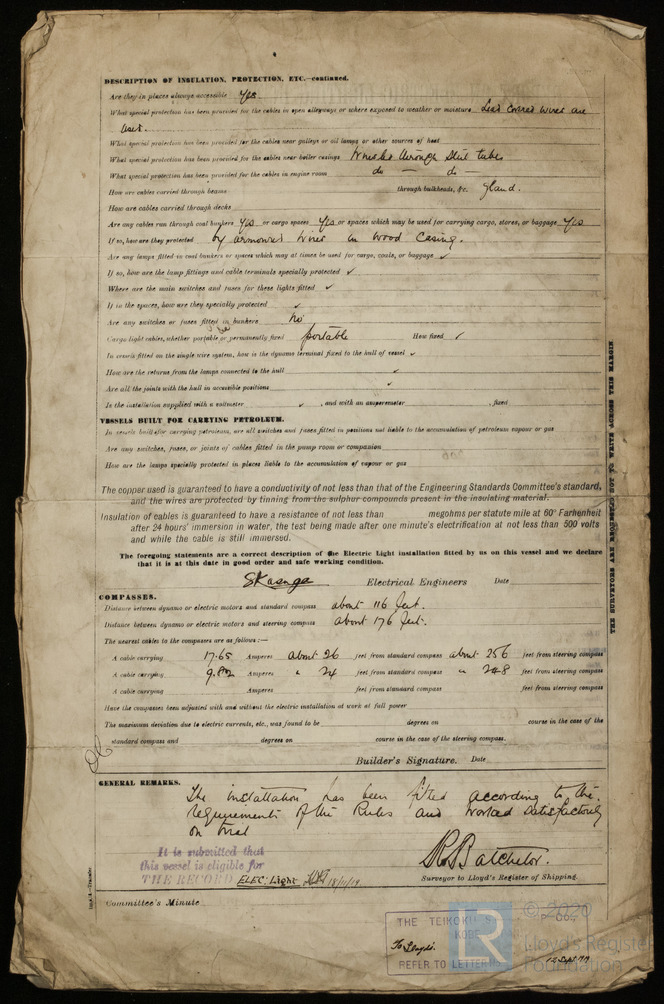 DESCRIPTION OF INSULATION, PROTECTION, ETC.—continued.
Are they in places always accessible yes
What special protection has been provided for the cables in open alleyways or where exposed to weather or moisture Lead covered wires are
used.
What special protection has been provided for the cables near galleys or oil lamps or other sources of heat
What special protection has been provided for the cables near boiler casings through steel tubes
What special protection has been provided for the cables in engine room do — do —
How are cables carried through beams through bulkheads, &c. gland.
How are cables carried through decks
Are any cables run through coal bunkers yes or cargo spaces yes or spaces which may be used for carrying cargo, stores, or baggage yes
If so, how are they protected by armoured wires in wood casing.
Are any lamps fitted in coal bunkers or spaces which may at times be used for cargo, coals, or baggage ✓
If so, how are the lamp fittings and cable terminals specially protected ✓
Where are the main switches and fuses for these lights fitted ✓
If in the spaces, how are they specially protected ✓
Are any switches or fuses fitted in bunkers No
Cargo light cables, whether portable or permanently fixed portable How fixed ✓
In vessels fitted on the single wire system, how is the dynamo terminal fixed to the hull of vessel ✓
How are the returns from the lamps connected to the hull ✓
Are all the joints with the hull in accessible positions ✓
Is the installation supplied with a voltmeter ✓, and with an amperemeter , fixed
VESSELS BUILT FOR CARRYING PETROLEUM.
In vessels built for carrying petroleum, are all switches and fuses fitted in positions not liable to the accumulation of petroleum vapour or gas
Are any switches, fuses, or joints of cables fitted in the pump room or companion
How are the lamps specially protected in places liable to the accumulation of vapour or gas
The copper used is guaranteed to have a conductivity of not less than that of the Engineering Standards Committee's standard,
and the wires are protected by tinning from the sulphur compounds present in the insulating material.
Insulation of cables is guaranteed to have a resistance of not less than megohms per statute mile at 60° Farhenheit
after 24 hours' immersion in water, the test being made after one minute's electrification at not less than 500 volts
and while the cable is still immersed.
The foregoing statements are a correct description of the Electric Light installation fitted by us on this vessel and we declare
that it is at this date in good order and safe working condition.
Electrical Engineers Date
COMPASSES.
Distance between dynamo or electric motors and standard compass about 116 feet.
Distance between dynamo or electric motors and steering compass about 176 feet.
The nearest cables to the compasses are as follows:—
A cable carrying 17.65 Amperes about 26 feet from standard compass about 256 feet from steering compass
A cable carrying Amperes " 24 feet from standard compass " 248 feet from steering compass
A cable carrying Amperes feet from standard compass feet from steering compass
Have the compasses been adjusted with and without the electric installation at work at full power
The maximum deviation due to electric currents, etc., was found to be degrees on course in the case of the
standard compass and degrees on course in the case of the steering compass.
Builder's Signature. Date
GENERAL REMARKS.
The installation has been fitted according to the
requirements of the Rules and worked satisfactorily
on trial
It is submitted that
this vessel is eligible for
THE RECORD ELEC: Light 18/11/19
R Batchelor.
Surveyor to Lloyd's Register of Shipping.
Committee's Minute
THE SURVEYORS ARE REQUESTED NOT TO WRITE ACROSS THIS MARGIN
THE TEIKOKU
KOBE
To Lloyds.
REFER TO LETTER
12 Sept 1919
© 2020
Lloyd's Register
Foundation